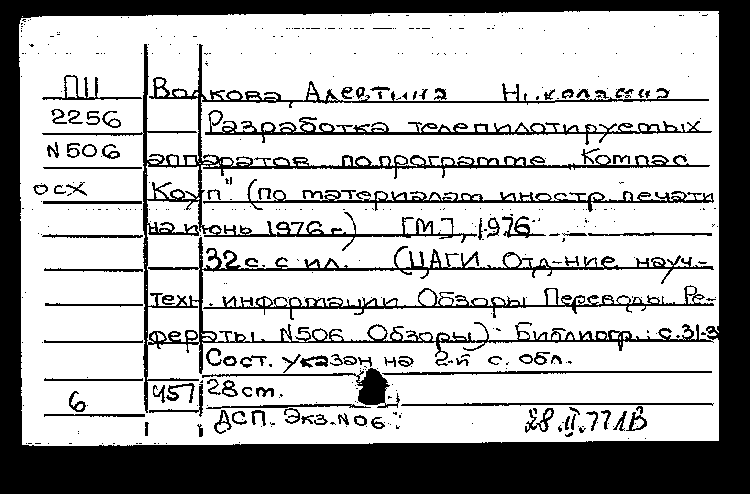 ПII Волкова, Алевтина Николаевна
2256 Разработка телепилотируемых
N506 аппаратов по программе „Компас
осх Коуп" (по материалам иностр. печати
на июнь 1976 г.) [М], 1976
32 с. с ил. (ЦАГИ. Отд-ние науч.-
техн. информации. Обзоры. Переводы. Ре-
фераты. N506. Обзоры). Библиогр.: с. 31-3
Сост. указан на 2-й с. обл.
6 457 28 см.
ДСП. Экз. N 06.
28.II.77